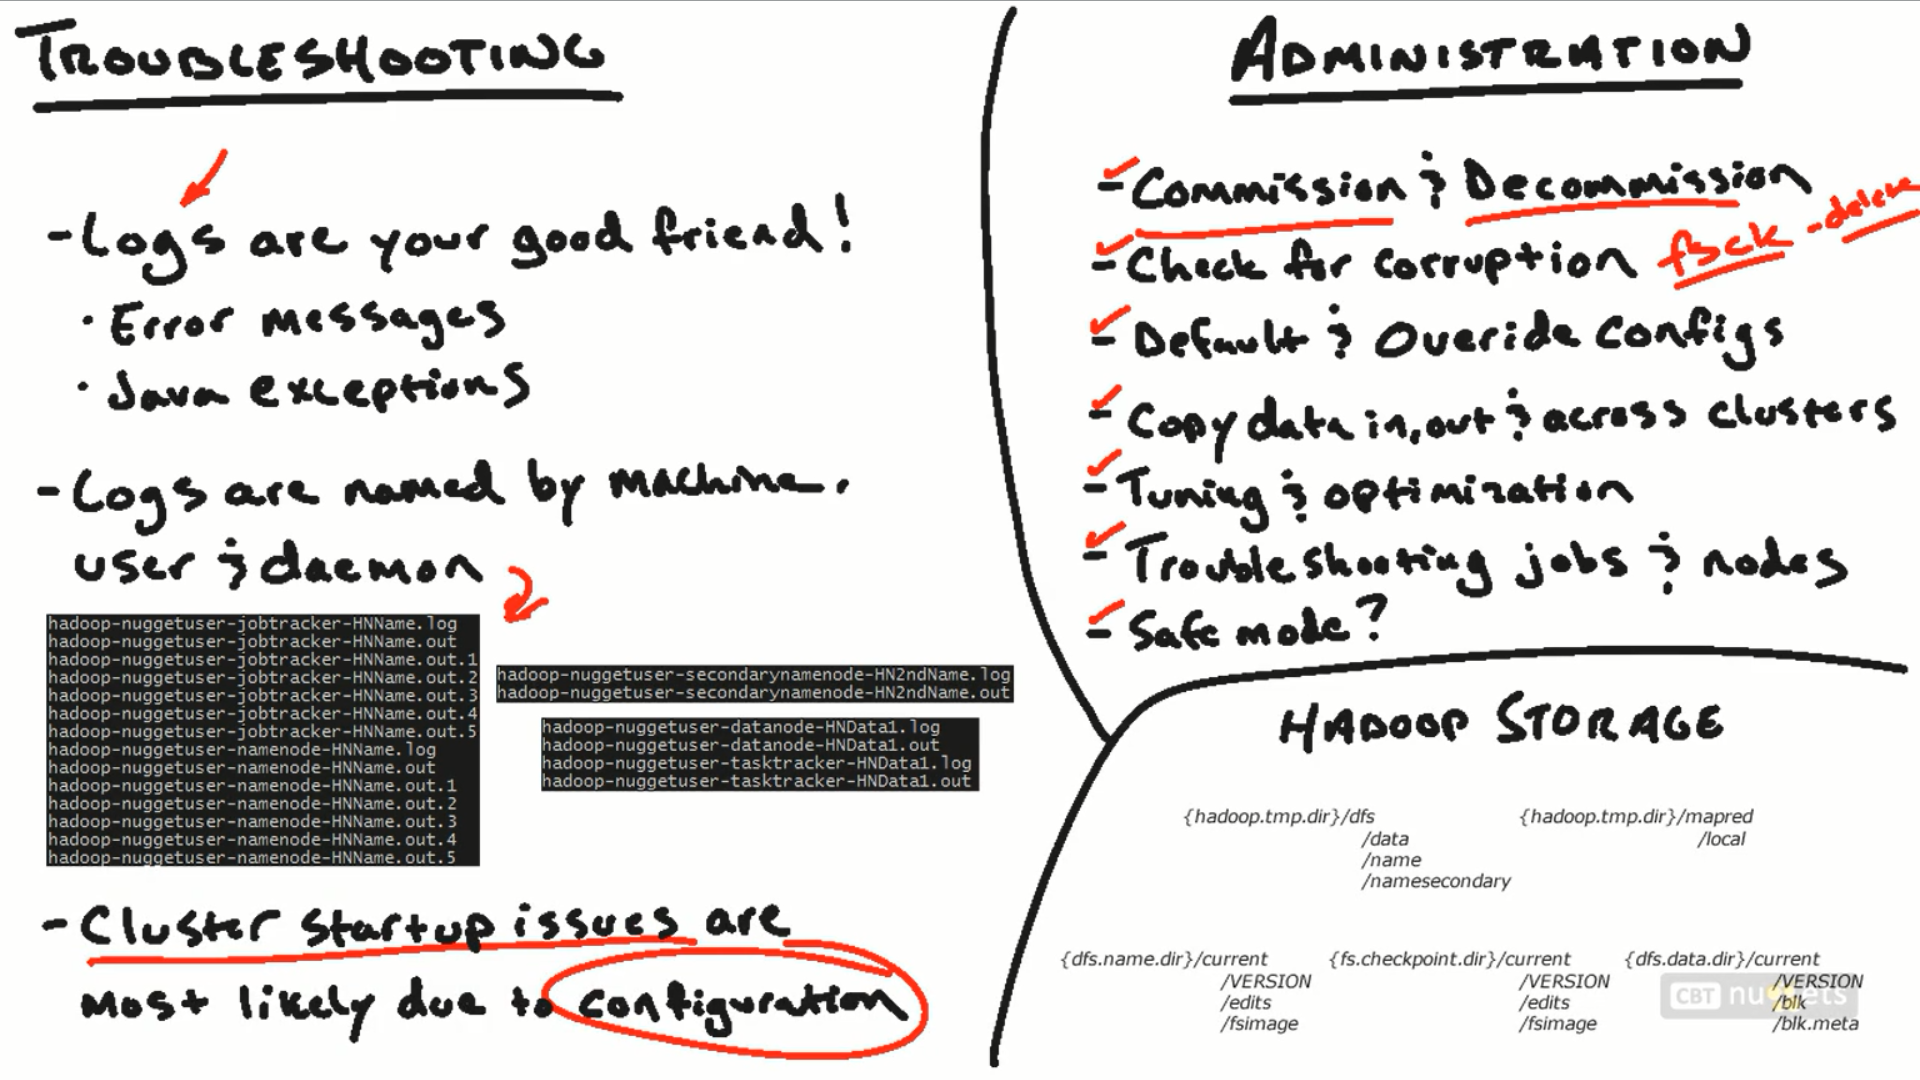 TROUBLESHOOTING
- Logs are your good friend!
· Error messages
· Java exceptions
- Logs are named by machine,
user & daemon
hadoop-nuggetuser-jobtracker-HNName.log
hadoop-nuggetuser-jobtracker-HNName.out
hadoop-nuggetuser-jobtracker-HNName.out.1
hadoop-nuggetuser-jobtracker-HNName.out.2
hadoop-nuggetuser-jobtracker-HNName.out.3
hadoop-nuggetuser-jobtracker-HNName.out.4
hadoop-nuggetuser-jobtracker-HNName.out.5
hadoop-nuggetuser-namenode-HNName.log
hadoop-nuggetuser-namenode-HNName.out
hadoop-nuggetuser-namenode-HNName.out.1
hadoop-nuggetuser-namenode-HNName.out.2
hadoop-nuggetuser-namenode-HNName.out.3
hadoop-nuggetuser-namenode-HNName.out.4
hadoop-nuggetuser-namenode-HNName.out.5
hadoop-nuggetuser-secondarynamenode-HN2ndName.log
hadoop-nuggetuser-secondarynamenode-HN2ndName.out
hadoop-nuggetuser-datanode-HNData1.log
hadoop-nuggetuser-datanode-HNData1.out
hadoop-nuggetuser-tasktracker-HNData1.log
hadoop-nuggetuser-tasktracker-HNData1.out
- Cluster startup issues are
most likely due to configuration
ADMINISTRATION
- Commission & Decommission
- Check for corruption fsck -delete
- Default & Overide configs
- Copy data in, out & across clusters
- Tuning & optimization
- Troubleshooting jobs & nodes
- Safe mode?
HADOOP STORAGE
{hadoop.tmp.dir}/dfs
/data
/name
/namesecondary
{hadoop.tmp.dir}/mapred
/local
{dfs.name.dir}/current
/VERSION
/edits
/fsimage
{fs.checkpoint.dir}/current
/VERSION
/edits
/fsimage
{dfs.data.dir}/current
/VERSION
/blk
/blk.meta
CBT nuggets